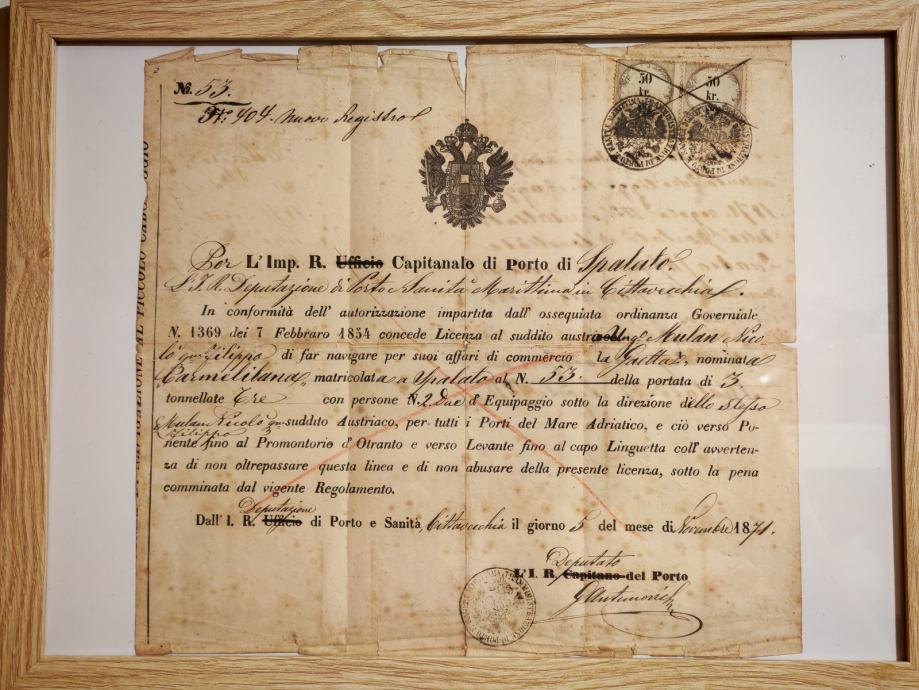 №. 53.
No 404. Nuovo Registro
50 kr. 50 kr.
Per L'Imp. R. Ufficio Capitanalo di Porto di Spalato.
L'I. R. Deputazione di Porto e Sanità Marittima in Cittavecchia
In conformità dell' autorizzazione impartita dall' ossequiata ordinanza Governiale
N. 1369 dei 7 Febbraro 1854 concede Licenza al suddito austriaco Mulan Nico
lò qm Filippo di far navigare per suoi affari di commercio la Gaetta, nominata
"Carmelitana" matricolata a Spalato al N. 53. della portata di 3
tonnellate tre con persone N. 2 Due d' Equipaggio sotto la direzione dello stesso
Mulan Nicolò qm Filippo suddito Austriaco, per tutti i Porti del Mare Adriatico, e ciò verso Po-
nente fino al Promontorio d' Otranto e verso Levante fino al capo Linguetta coll' avverten-
za di non oltrepassare questa linea e di non abusare della presente licenza, sotto la pena
comminata dal vigente Regolamento.
Deputazione
Dall' I. R. Ufficio di Porto e Sanità, Cittavecchia il giorno 5 del mese di Novembre 1871.
Deputato
L'I. R. Capitano del Porto
GAntunovich